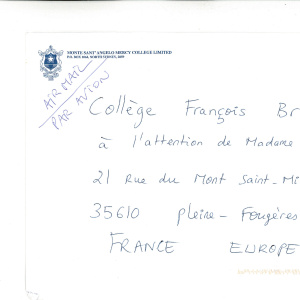 MONTE SANT'ANGELO MERCY COLLEGE LIMITED
P.O. BOX 1064, NORTH SYDNEY, 2059
AIR MAIL
PAR AVION
Collège François Br
à l'attention de Madame
21 Rue du Mont Saint-Mi
35610 pleine-Fougères
FRANCE EUROPE